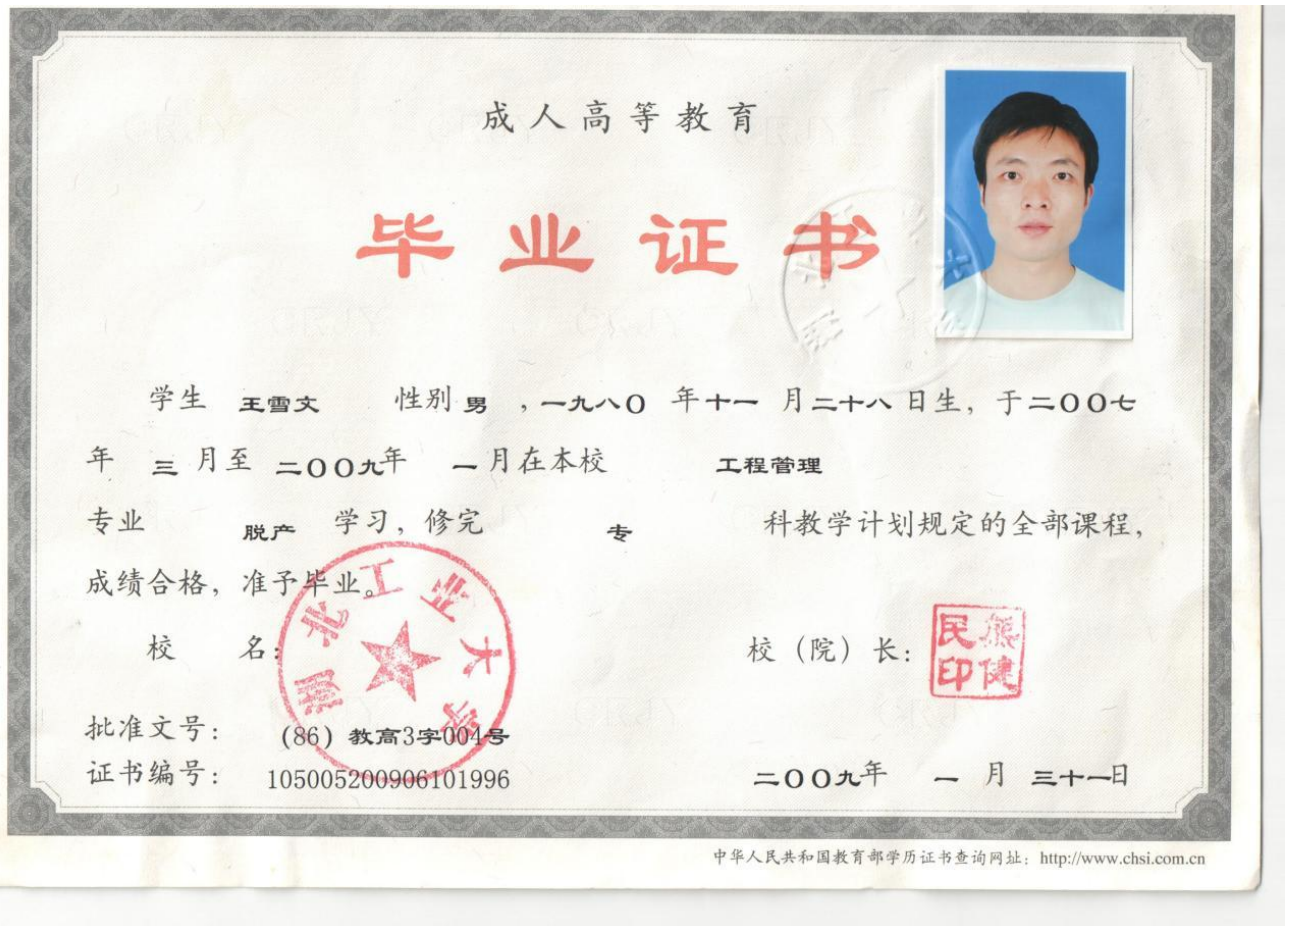 成人高等教育
毕业证书
学生 王雪文 性别 男 ，一九八〇 年 十一 月 二十八 日生，于 二〇〇七
年 三 月至 二〇〇九年 一 月在本校 工程管理
专业 脱产 学习，修完 专 科教学计划规定的全部课程，
成绩合格，准予毕业。
湖北工业大学
校 名： 校（院）长：
熊健民印
批准文号： (86) 教高3字004号
证书编号： 105005200906101996 二〇〇九年 一 月 三十一日
中华人民共和国教育部学历证书查询网址：http://www.chsi.com.cn